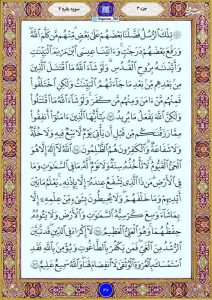 جزء ۳
سوره بقره ۲
تِلْكَ الرُّسُلُ فَضَّلْنَا بَعْضَهُمْ عَلَىٰ بَعْضٍ مِّنْهُم مَّن كَلَّمَ اللَّهُ
وَرَفَعَ بَعْضَهُمْ دَرَجَٰتٍ وَءَاتَيْنَا عِيسَى ابْنَ مَرْيَمَ الْبَيِّنَٰتِ
وَأَيَّدْنَٰهُ بِرُوحِ الْقُدُسِ وَلَوْ شَاءَ اللَّهُ مَا اقْتَتَلَ الَّذِينَ
مِن بَعْدِهِم مِّن بَعْدِ مَا جَاءَتْهُمُ الْبَيِّنَٰتُ وَلَٰكِنِ اخْتَلَفُوا
فَمِنْهُم مَّنْ ءَامَنَ وَمِنْهُم مَّن كَفَرَ وَلَوْ شَاءَ اللَّهُ مَا اقْتَتَلُوا
وَلَٰكِنَّ اللَّهَ يَفْعَلُ مَا يُرِيدُ ٢٥٣ يَٰأَيُّهَا الَّذِينَ ءَامَنُوا أَنفِقُوا
مِمَّا رَزَقْنَٰكُم مِّن قَبْلِ أَن يَأْتِيَ يَوْمٌ لَّا بَيْعٌ فِيهِ وَلَا خُلَّةٌ
وَلَا شَفَٰعَةٌ وَالْكَٰفِرُونَ هُمُ الظَّٰلِمُونَ ٢٥٤ اللَّهُ لَا إِلَٰهَ إِلَّا هُوَ
الْحَيُّ الْقَيُّومُ لَا تَأْخُذُهُ سِنَةٌ وَلَا نَوْمٌ لَّهُ مَا فِي السَّمَٰوَٰتِ وَمَا
فِي الْأَرْضِ مَن ذَا الَّذِي يَشْفَعُ عِندَهُ إِلَّا بِإِذْنِهِ يَعْلَمُ مَا بَيْنَ
أَيْدِيهِمْ وَمَا خَلْفَهُمْ وَلَا يُحِيطُونَ بِشَيْءٍ مِّنْ عِلْمِهِ إِلَّا
بِمَا شَاءَ وَسِعَ كُرْسِيُّهُ السَّمَٰوَٰتِ وَالْأَرْضَ وَلَا يَئُودُهُ
حِفْظُهُمَا وَهُوَ الْعَلِيُّ الْعَظِيمُ ٢٥٥ لَا إِكْرَاهَ فِي الدِّينِ قَد تَّبَيَّنَ
الرُّشْدُ مِنَ الْغَيِّ فَمَن يَكْفُرْ بِالطَّٰغُوتِ وَيُؤْمِن بِاللَّهِ فَقَدِ
اسْتَمْسَكَ بِالْعُرْوَةِ الْوُثْقَىٰ لَا انفِصَامَ لَهَا وَاللَّهُ سَمِيعٌ عَلِيمٌ ٢٥٦
۴۲